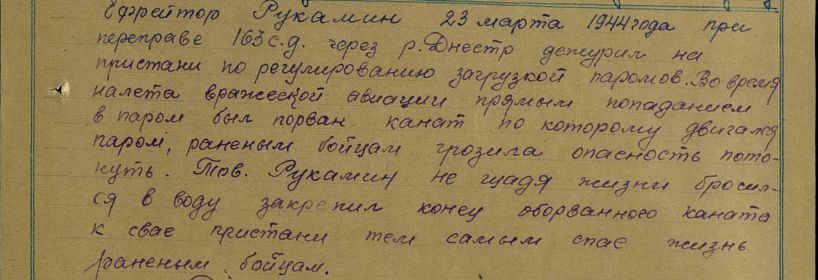 Ефрейтор Рукамин 23 марта 1944 года при
переправе 163 с.д. через р. Днестр дежурил на
пристани по регулированию загрузкой паромов. Во время
налета вражеской авиации прямым попаданием
в паром был порван канат по которому двигался
паром, раненым бойцам грозила опасность пото-
нуть. Тов. Рукамин не щадя жизни бросил-
ся в воду закрепил конец оборванного каната
к свае пристани тем самым спас жизнь
раненым бойцам.